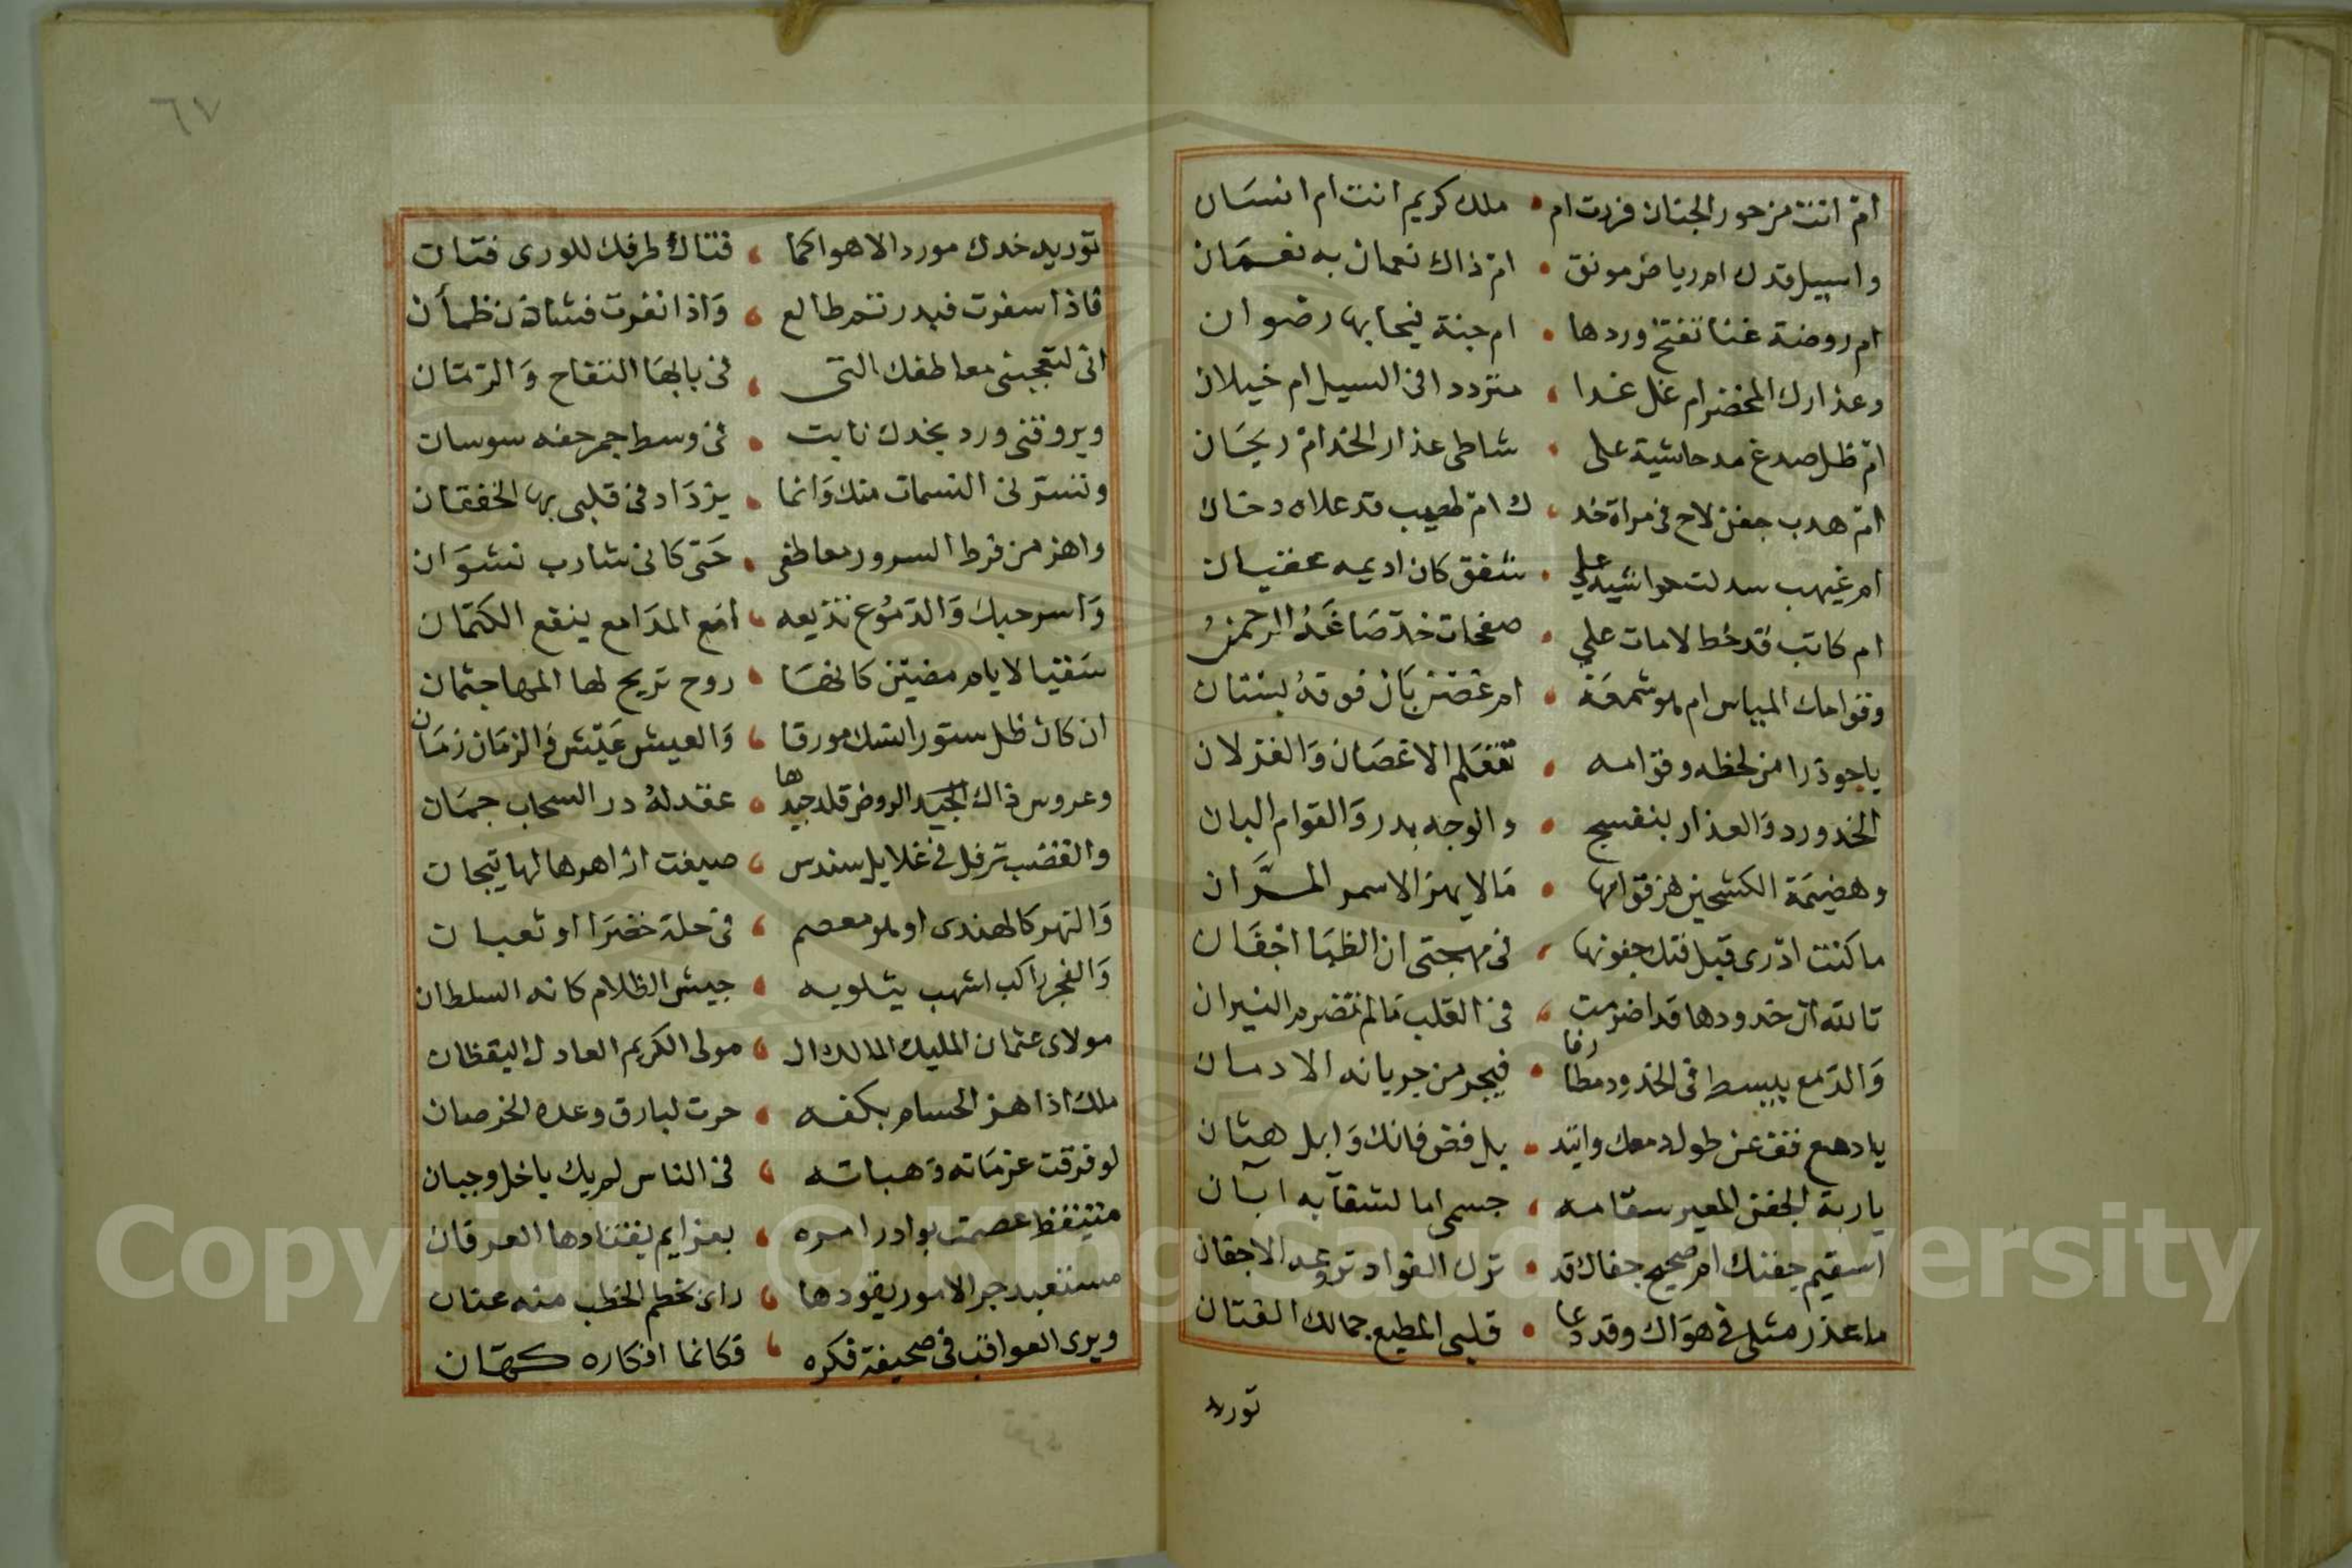 ام انت من حور الجنان فررت ام • ملك كريم انت ام انسان
واسيل قدك ام رياض مونق • ام ذاك نعمان به نعمان
ام روضة غنا تفتح وردها • ام جنة يحيا بها رضوان
وعذارك المخضر ام غل غدا • متردد افى السيل ام خيلان
ام ظل صدغ مد حاشية على • شاطى عذار الخد ام ريحان
ام هدب جفن لاح فى مراة خد • ك ام لهيب قد علاه دخان
ام غيهب سدلت حواشيه على • شفق كان اديمه عقيان
ام كاتب قد خط لامات على • صفحات خد صاغه الرحمن
وقوامك المياس ام شمعة • ام غصن بان فوقه بستان
ياجوذرا من لحظه وقوامه • تتعلم الاغصان والغزلان
الخد ورد والعذار بنفسج • والوجه بدر والقوام البان
وهضيمة الكشحين هز قوامها • مالا يهز الاسمر المران
ما كنت ادرى قبل فتك جفونها • فى مهجتى ان الظبا اجفان
تالله ان خدودها قد اضرمت • فى القلب مالم تضرم النيران
والدمع يبسط فى الخدود مطارفا • فيجر من جريانه الاردان
يا دمع قف عن طول دمعك واتئد • بل فض فانك وابل هتان
ياربة الجفن المعير سقامه • جسمى اما لشقآبه ابآن
اسقيم جفنك ام صحيح جفاك قد • ترك الفواد تروعه الاجفان
ما عذر مثلى فى هواك وقد دعا • قلبى المطيع جمالك الفتان
توريد
٦٧
توريد خدك مورد الاهوا كما • فتاك طرفك للورى فتان
فاذا سفرت فبدر تم طالع • واذا نفرت فشادن ظمأن
انى لتعجبنى معاطفك التى • فى بابها التفاح والرمان
ويروقنى ورد بخدك نابت • فى وسط جمر حفه سوسان
وتسرنى النسمات منك وانما • يزداد فى قلبى بها الخفقان
واهز من فرط السرور معاطفى • حتى كانى شارب نشوان
واسر حبك والدموع تذيعه • امع المدامع ينفع الكتمان
سقيا لايام مضين كانها • روح تريح لها المها جثمان
ان كان ظل ستور انسك مورقا • والعيش عيش والزمان زمان
وعروس ذاك الروض قلد جيدها • عقد له در السحاب جمان
والقضب ترفل فى غلايل سندس • صيغت ازاهرها لها تيجان
والنهر كالهندى او معصم • فى حلة خضرا او ثعبان
والفجر راكب اشهب يتلو به • جيش الظلام كانه السلطان
مولاى عثمان المليك المالك ال • مولى الكريم العادل اليقظان
ملك اذا هز الحسام بكفه • حرت لبارق وعده الخرصان
لو فرقت عزماته وهباته • فى الناس لم يك باخل وجبان
متيقظ عصمت بوادر امره • بعزايم يقتادها العرفان
مستعبد جر الامور يقودها • راى بخطم الخطب منه عنان
ويرى العواقب فى صحيفة فكره • فكانما افكاره كهان
Copyright © King Saud University